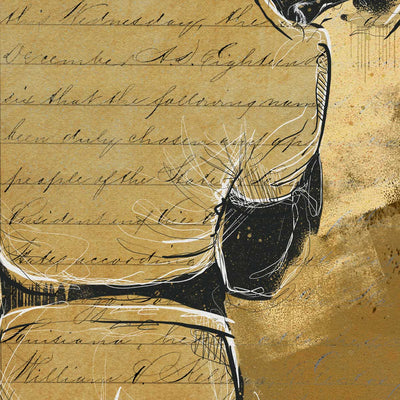 this Wednesday, the
December A.D. Eighteen
six that the following nam
been duly chosen and ap
people of the State
President and Vice
States accordi
Louisiana, he
William P. Kell